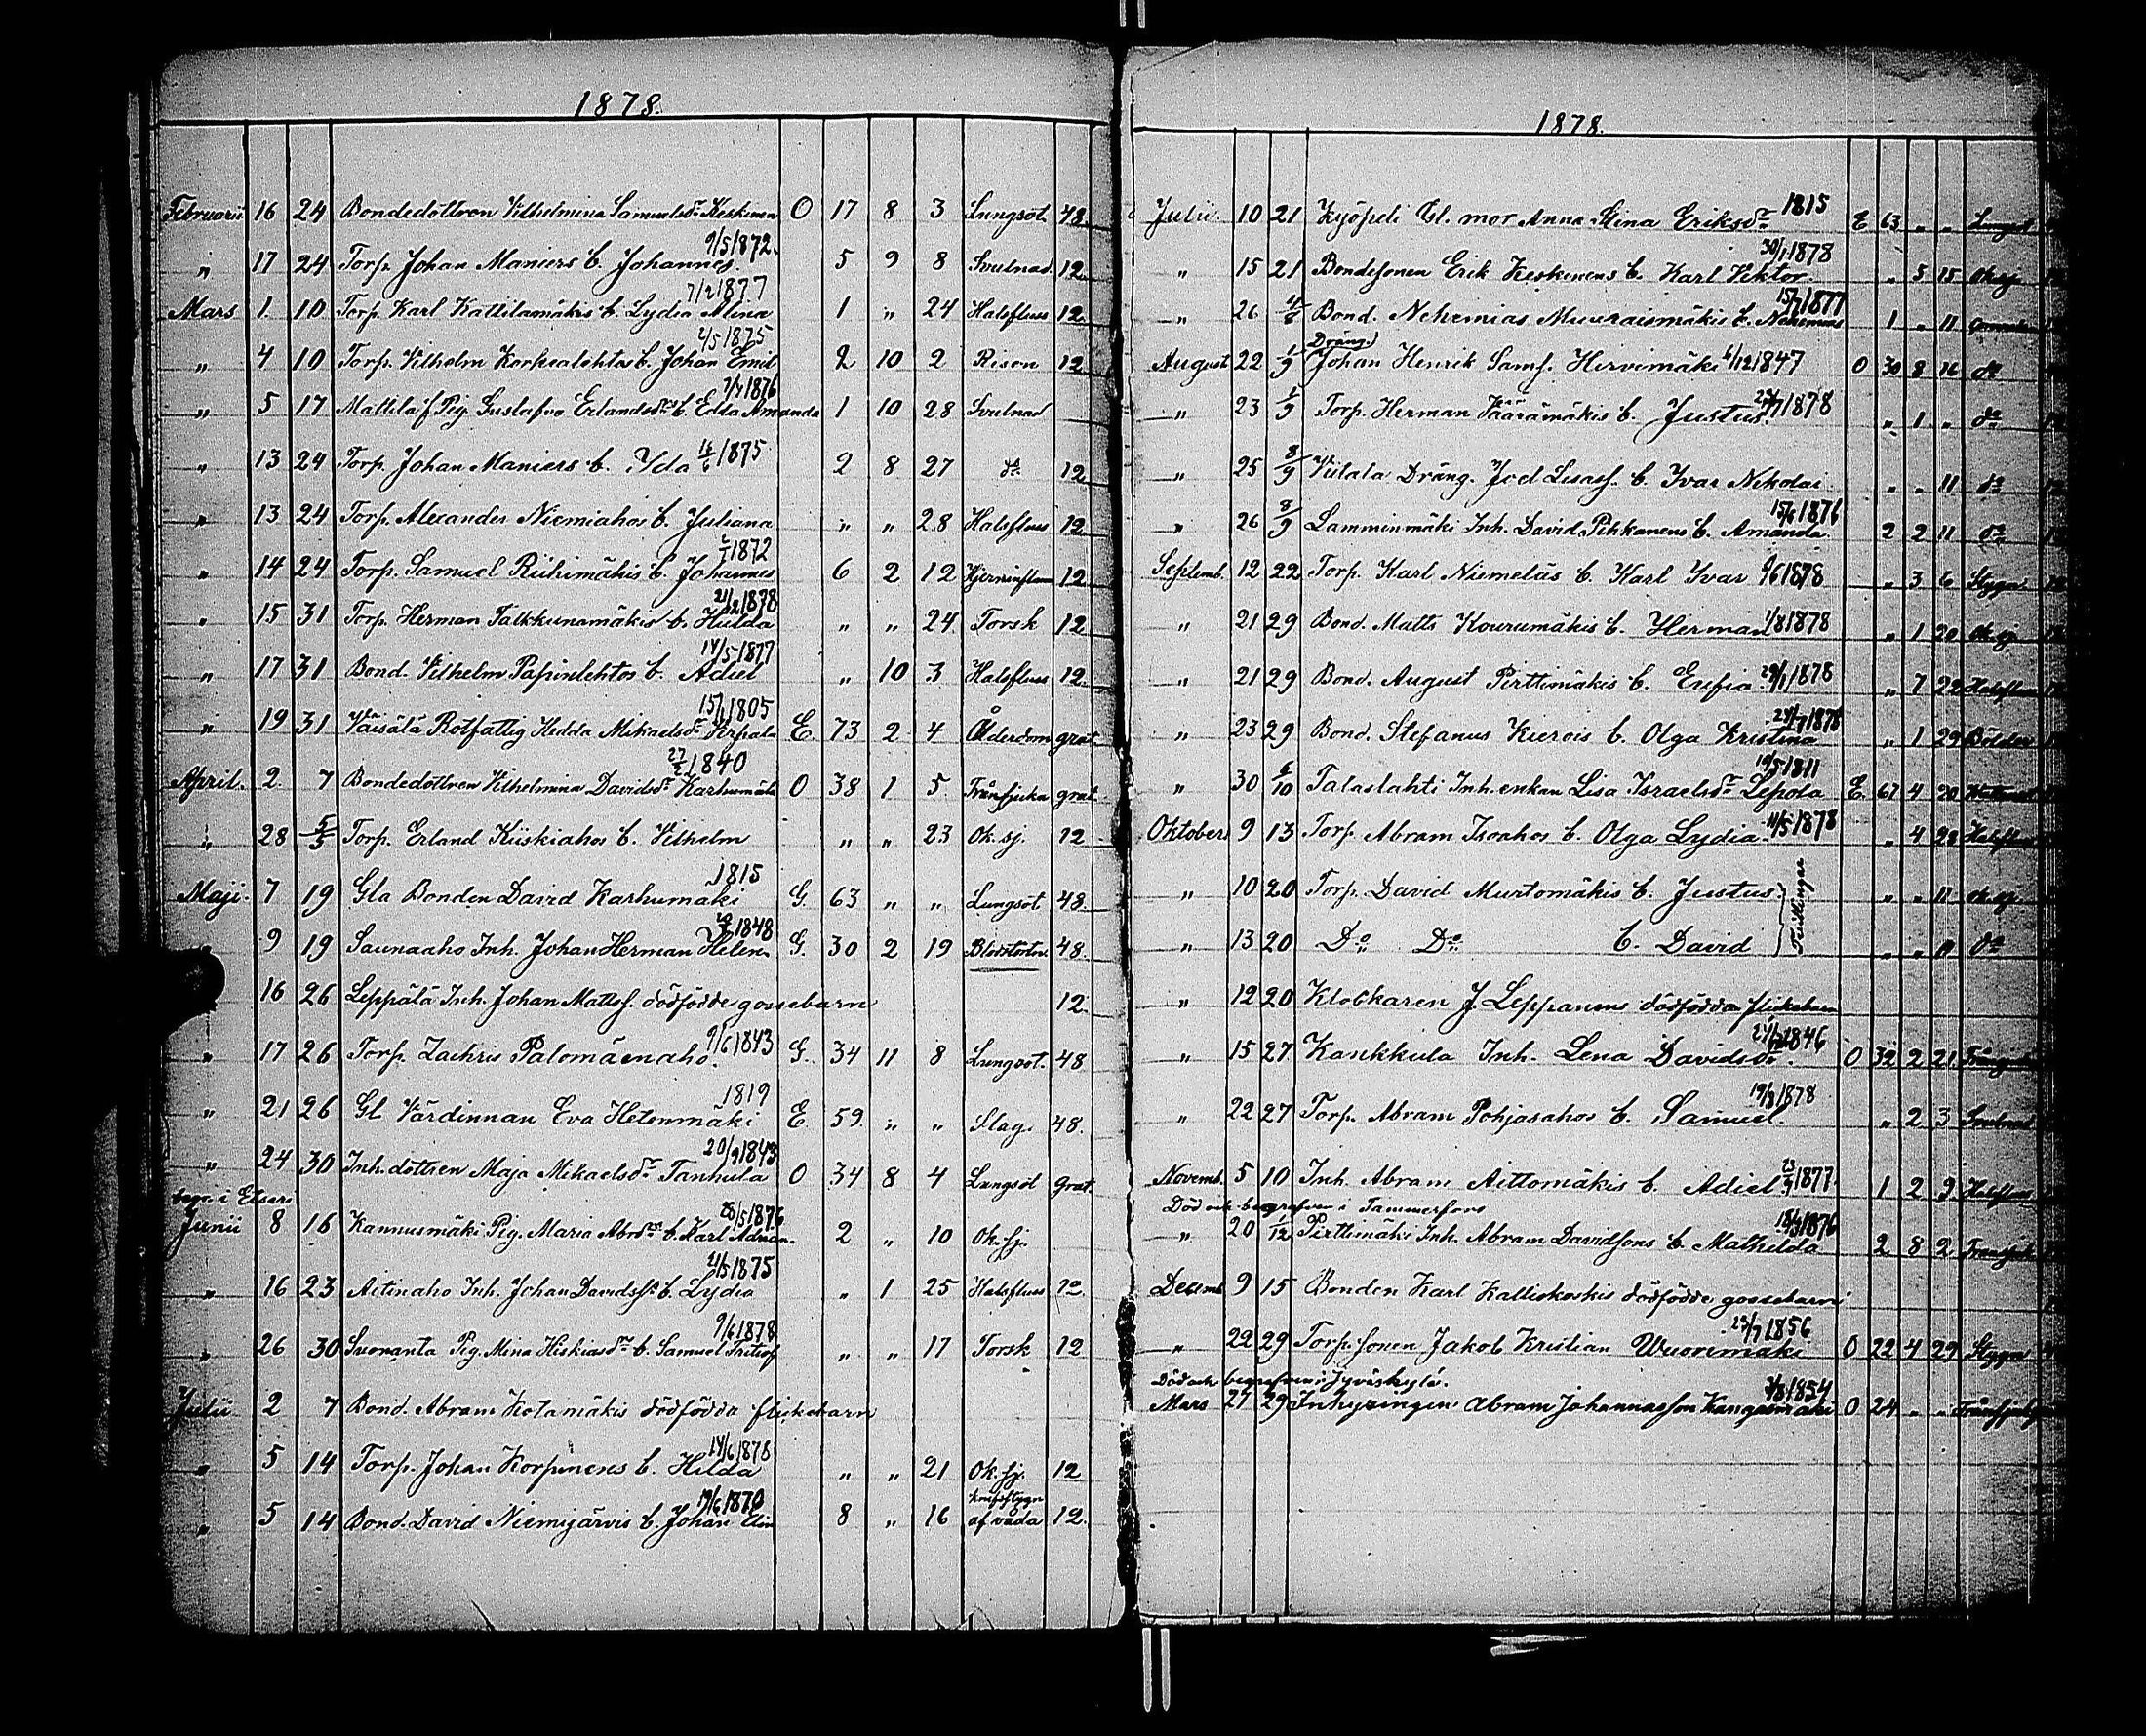 1878.
Februarii 16 24 Bondedottren Vilhelmina Samuelsdr Keskinen O 17 8 3 Lungsot. 48.
9/5 1872.
" 17 24 Torp. Johan Maniers b. Johannes. 5 9 8 Svulnad 12
7/2 1877
Mars 1. 10 Torp. Karl Kattilamäkis b. Lydia Mina 1 " 24 Halsfluss 12
2/5 1875
" 4 10 Torp. Vilhelm Korpealehtos b. Johan Emil 2 10 2 Risen 12
7/4 1876
" 5 17 Mattila f Pig. Gustafva Erlandsdrs b. Edla Amanda 1 10 28 Svulnad
" 13 24 Torp. Johan Maniers b. Yda 16/6 1875 2 8 27 do 12
" 13 24 Torp. Alexander Niemiahos b. Juliana " " 28 Halsfluss 12
1872
" 14 24 Torp. Samuel Riihimäkis b. Johannes 6 2 12 12
21/2 1878
" 15 31 Torp. Herman Talkkunamäkis b. Hulda " " 24 Torsk 12
14/5 1877
" 17 31 Bond. Vilhelm Papinlehtos b. Adiel " 10 3 Halsfluss 12.
15/1 1805
" 19 31 Väisälä Rotfattig Hedda Mikaelsdr Virpala E. 73 2 4 Ålderdom grat.
27/2 1840
April. 2. 7 Bondedottren Vilhelmina Davidsdr Karhumäki O 38 1 5 Trånsjuka grat.
" 28 5/5 Torp. Erland Kiiskiahos b. Vilhelm " " 23 Ok. sj. 12
1815
Maji. 7 19 Gla Bonden David Karhumäki G. 63 " " Lungsot 48.
1848
" 9 19 Saunaaho Inh. Johan Herman Helen G. 30 2 19 48.
16 26 Leppälä Inh. Johan Mattsf. dödfödde gossebarn 12.
9/6 1843
" 17 26 Torp. Zachris Palomäenaho. G. 34 11 8 Lungsot. 48
1819
" 21 26 Gl Värdinnan Eva Hetenmäki E 59. " " Slag. 48.
20/9 1843
" 24 30 Inh. dottren Maja Mikaelsdr Tanhula O 34 8 4 Lungsot Grat.
begr. i Etseri
28/5 1876
Junii 8 16 Kannusmäki Pig. Maria Abrdrs b. Karl Adrian. 2 " 10 Ok. sj.
21/5 1875
" 16 23 Aitinaho Inh. Johan Davidss b. Lydia " 1 25 Halsfluss 12
9/6 1878
" 26 30 Suoranta Pig. Mina Hiskiasdrs b. Samuel Fritiof " " 17 Torsk 12
Julii 2 7 Bond. Abram Kotamäkis dödfödda flickebarn
14/6 1878
" 5 14 Torp. Johan Korpinens b. Hilda " " 21 Ok. sj. 12
19/6 1870
" 5 14 Bond. David Niemijärvis b. Johan Elis 8 " 16 knifstygn af våda 12.
1878.
1815
Julii. 10 21 Kyöpeli Gl. mor Anna Stina Eriksdr E 63 " " Lungsot
30/1 1878
" 15 21 Bondesonen Erik Keskinens b. Karl Viktor. " 5 15 Ok sj.
15/7 1877
" 26 4/8 Bond. Nehemias Muuraismäkis b. Nehemias 1 " 11
Dräng.
August 22 1/9 Johan Henrik Samf. Hirvimäki 6/12 1847 O 30 8 16 do
" 23 1/9 Torp. Herman Väärämäkis b. Justus. 1878 " 1 " do
" 25 8/9 Viitala Dräng. Joel Lisass. b. Ivar Nikolai " " 11 do
15/6 1876
" 26 8/9 Lamminmäki Inh. David Pihkanens b. Amanda. 2 2 11 do
Septemb. 12 22 Torp. Karl Niemeläs b. Karl Ivar 6/6 1878 " 3 6 Stygn
" 21 29 Bond. Matts Kourumäkis b. Herman 1/8 1878 " 1 20 Ok sj.
" 21 29 Bond. August Pirttimäkis b. Eufia. 29/1 1878 " 7 22 Halsfluss
24/7 1878
" 23 29 Bond. Stefanus Kierois b. Olga Kristina " 1 29 Bölder
10/5 1811
" 30 6/10 Talaslahti Inh. enkan Lisa Israelsdr Lepola E. 67 4 20
Oktober 9 13 Torp. Abram Isoahos b. Olga Lydia. 11/5 1878 " 4 28 Halsfluss
" 10 20 Torp. David Murtomäkis b. Justus. " " 11 Ok. sj.
Tvillingar
" 13 20 Do Do b. David " " 11 do
" 12 20 Klockaren J. Leppanens dödfödda flickebarn
1846
" 15 27 Kankkula Inh. Lena Davidsdr. O 32 2 21.
19/8 1878
" 22 27 Torp. Abram Pohjasahos b. Samuel. " 2 3 Svulnad
Novemb. 5 10 Inh. Abram Aittomäkis b. Adiel 1877. 1 2 9 Halsfluss
Död och begrafven i Tammerfors
18/3 1876
" 20 1/12 Pirttimäki Inh. Abram Davidsons b. Mathilda 2 8 2
Decemb 9 15 Bonden Karl Kalliokoskis dödfödde gossebarn
23/7 1856
" 22 29 Torp. sonen Jakob Kristian Wuorimäki O 22 4 29 Stygn
Död och begrafven i Jyväskylä.
1854
Mars 27 29 Inhysingen Abram Johannesson Kangasmäki O 24 " " Trånsjuka